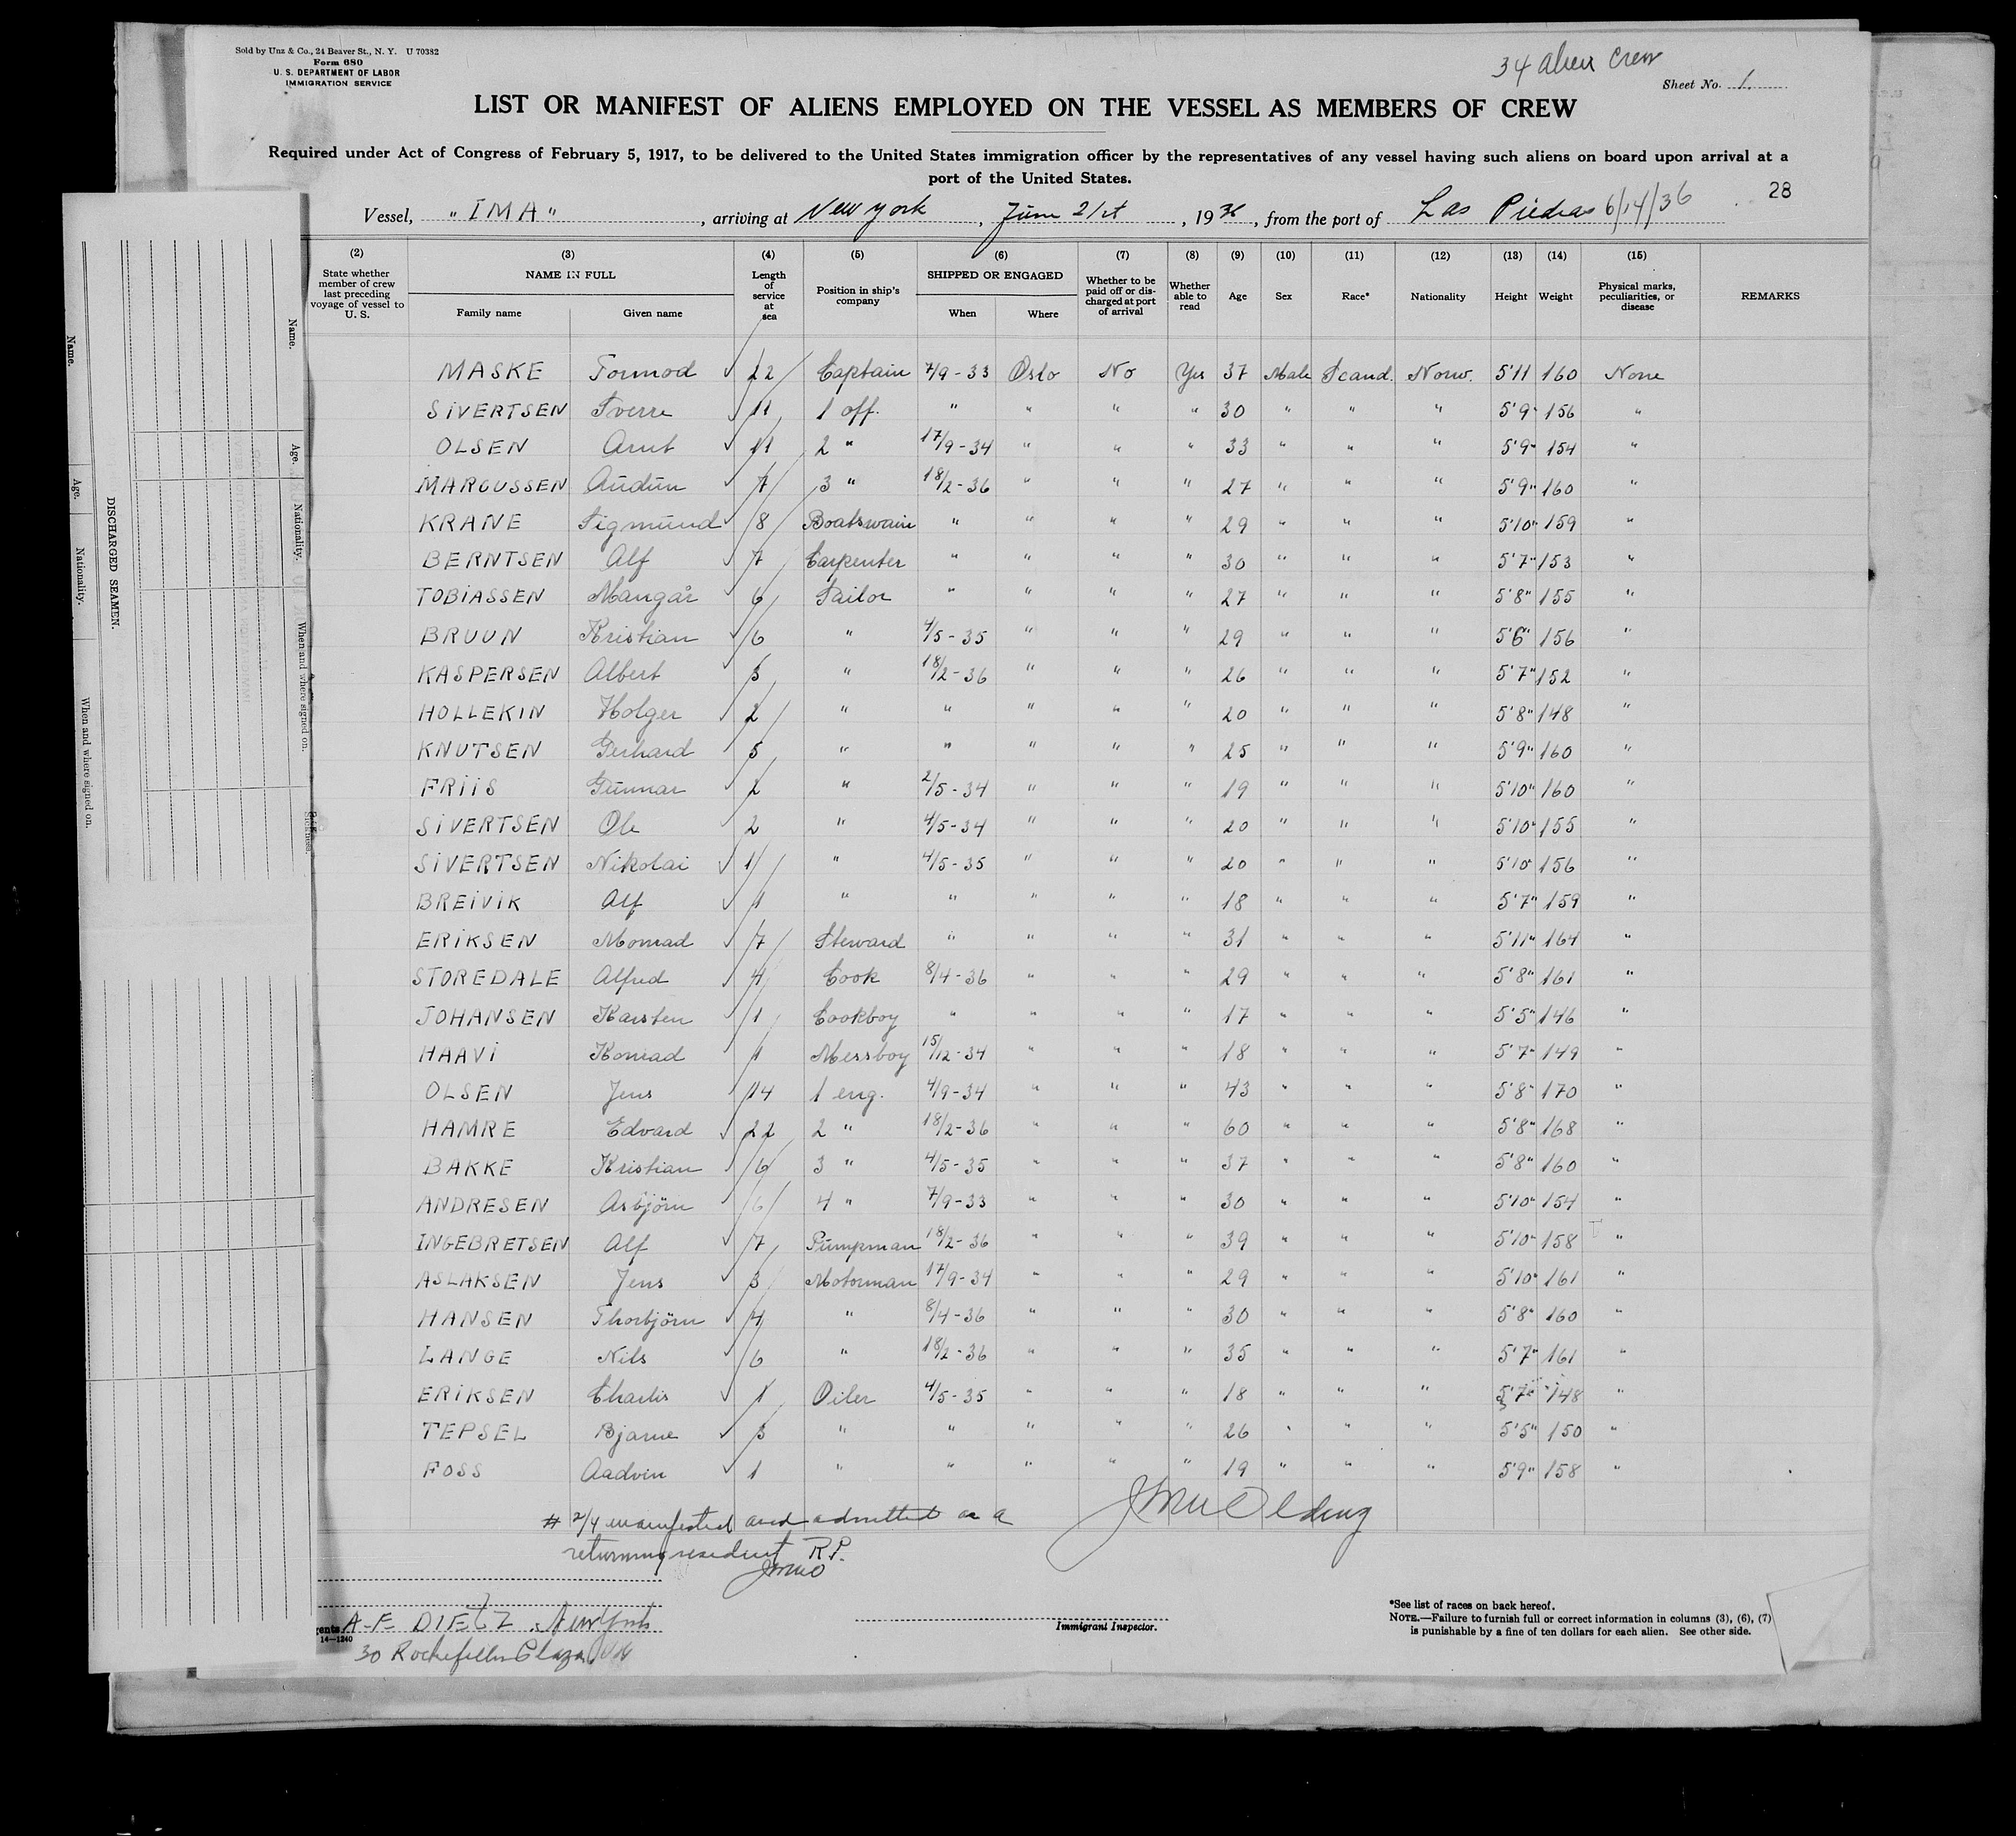 Sold by Unz & Co., 24 Beaver St., N. Y. U 70382
Form 680
U. S. DEPARTMENT OF LABOR
IMMIGRATION SERVICE
34 alien crew
Sheet No. 1.
LIST OR MANIFEST OF ALIENS EMPLOYED ON THE VESSEL AS MEMBERS OF CREW
Required under Act of Congress of February 5, 1917, to be delivered to the United States immigration officer by the representatives of any vessel having such aliens on board upon arrival at a
port of the United States.
28
Vessel, "IMA", arriving at New York, June 21st, 1936, from the port of Las Piedras 6/14/36
(2) State whether member of crew last preceding voyage of vessel to U. S. (3) NAME IN FULL Family name Given name (4) Length of service at sea (5) Position in ship's company (6) SHIPPED OR ENGAGED When Where (7) Whether to be paid off or discharged at port of arrival (8) Whether able to read (9) Age (10) Sex (11) Race* (12) Nationality (13) Height (14) Weight (15) Physical marks, peculiarities, or disease REMARKS
MASKE Tormod √ 22 Captain 7/9-33 Oslo No Yes 37 Male Scand. Norw. 5'11 160 None
SIVERTSEN Sverre √ 11 1 off. " " " " 30 " " " 5'9" 156 "
OLSEN Arnt √ 11 2 " 17/9-34 " " " 33 " " " 5'9" 154 "
MARCUSSEN Audun √ 7 3 " 18/2-36 " " " 27 " " " 5'9" 160 "
KRANE Sigmund √ 8 Boatswain " " " " 29 " " " 5'10" 159 "
BERNTSEN Alf √ 7 Carpenter " " " " 30 " " " 5'7" 153 "
TOBIASSEN Mangår √ 6 Sailor " " " " 27 " " " 5'8" 155 "
BRUUN Kristian √ 6 " 4/5-35 " " " 29 " " " 5'6" 156 "
KASPERSEN Albert √ 3 " 18/2-36 " " " 26 " " " 5'7" 152 "
HOLLEKIN Holger √ 2 " " " " " 20 " " " 5'8" 148 "
KNUTSEN Gerhard √ 5 " " " " " 25 " " " 5'9" 160 "
FRIIS Gunnar √ 2 " 2/5-34 " " " 19 " " " 5'10" 160 "
SIVERTSEN Ole √ 2 " 4/5-34 " " " 20 " " " 5'10" 155 "
SIVERTSEN Nikolai √ 1 " 4/5-35 " " " 20 " " " 5'10" 156 "
BREIVIK Alf √ 1 " " " " " 18 " " " 5'7" 159 "
ERIKSEN Monrad √ 7 Steward " " " " 31 " " " 5'11" 164 "
STOREDALE Alfred √ 4 Cook 8/4-36 " " " 29 " " " 5'8" 161 "
JOHANSEN Karsten √ 1 Cookboy " " " " 17 " " " 5'5" 146 "
HAAVI Konrad √ 1 Messboy 15/12-34 " " " 18 " " " 5'7" 149 "
OLSEN Jens √ 14 1 eng. 4/9-34 " " " 43 " " " 5'8" 170 "
HAMRE Edvard √ 22 2 " 18/2-36 " " " 60 " " " 5'8" 168 "
BAKKE Kristian √ 6 3 " 4/5-35 " " " 37 " " " 5'8" 160 "
ANDRESEN Asbjörn √ 6 4 " 7/9-33 " " " 30 " " " 5'10" 154 "
INGEBRETSEN Alf √ 7 Pumpman 18/2-36 " " " 39 " " " 5'10" 158 "
ASLAKSEN Jens √ 3 Motorman 17/9-34 " " " 29 " " " 5'10" 161 "
HANSEN Thorbjörn √ 4 " 8/4-36 " " " 30 " " " 5'8" 160 "
LANGE Nils √ 6 " 18/2-36 " " " 35 " " " 5'7" 161 "
ERIKSEN Charles √ 1 Oiler 4/5-35 " " " 18 " " " 5'7" 148 "
TEPSEL Bjarne √ 3 " " " " " 26 " " " 5'5" 150 "
FOSS Aadvin √ 1 " " " " " 19 " " " 5'9" 158 "
# 2/4 manifested and admitted as a
returning resident R.P.
A-F DIETZ. New York
30 Rockefeller Plaza NY
14—1240
Immigrant Inspector.
*See list of races on back hereof.
NOTE.—Failure to furnish full or correct information in columns (3), (6), (7)
is punishable by a fine of ten dollars for each alien. See other side.
DISCHARGED SEAMEN.
Name.
Age.
Nationality.
When and where signed on.
Name.
Age.
Nationality.
When and where signed on.